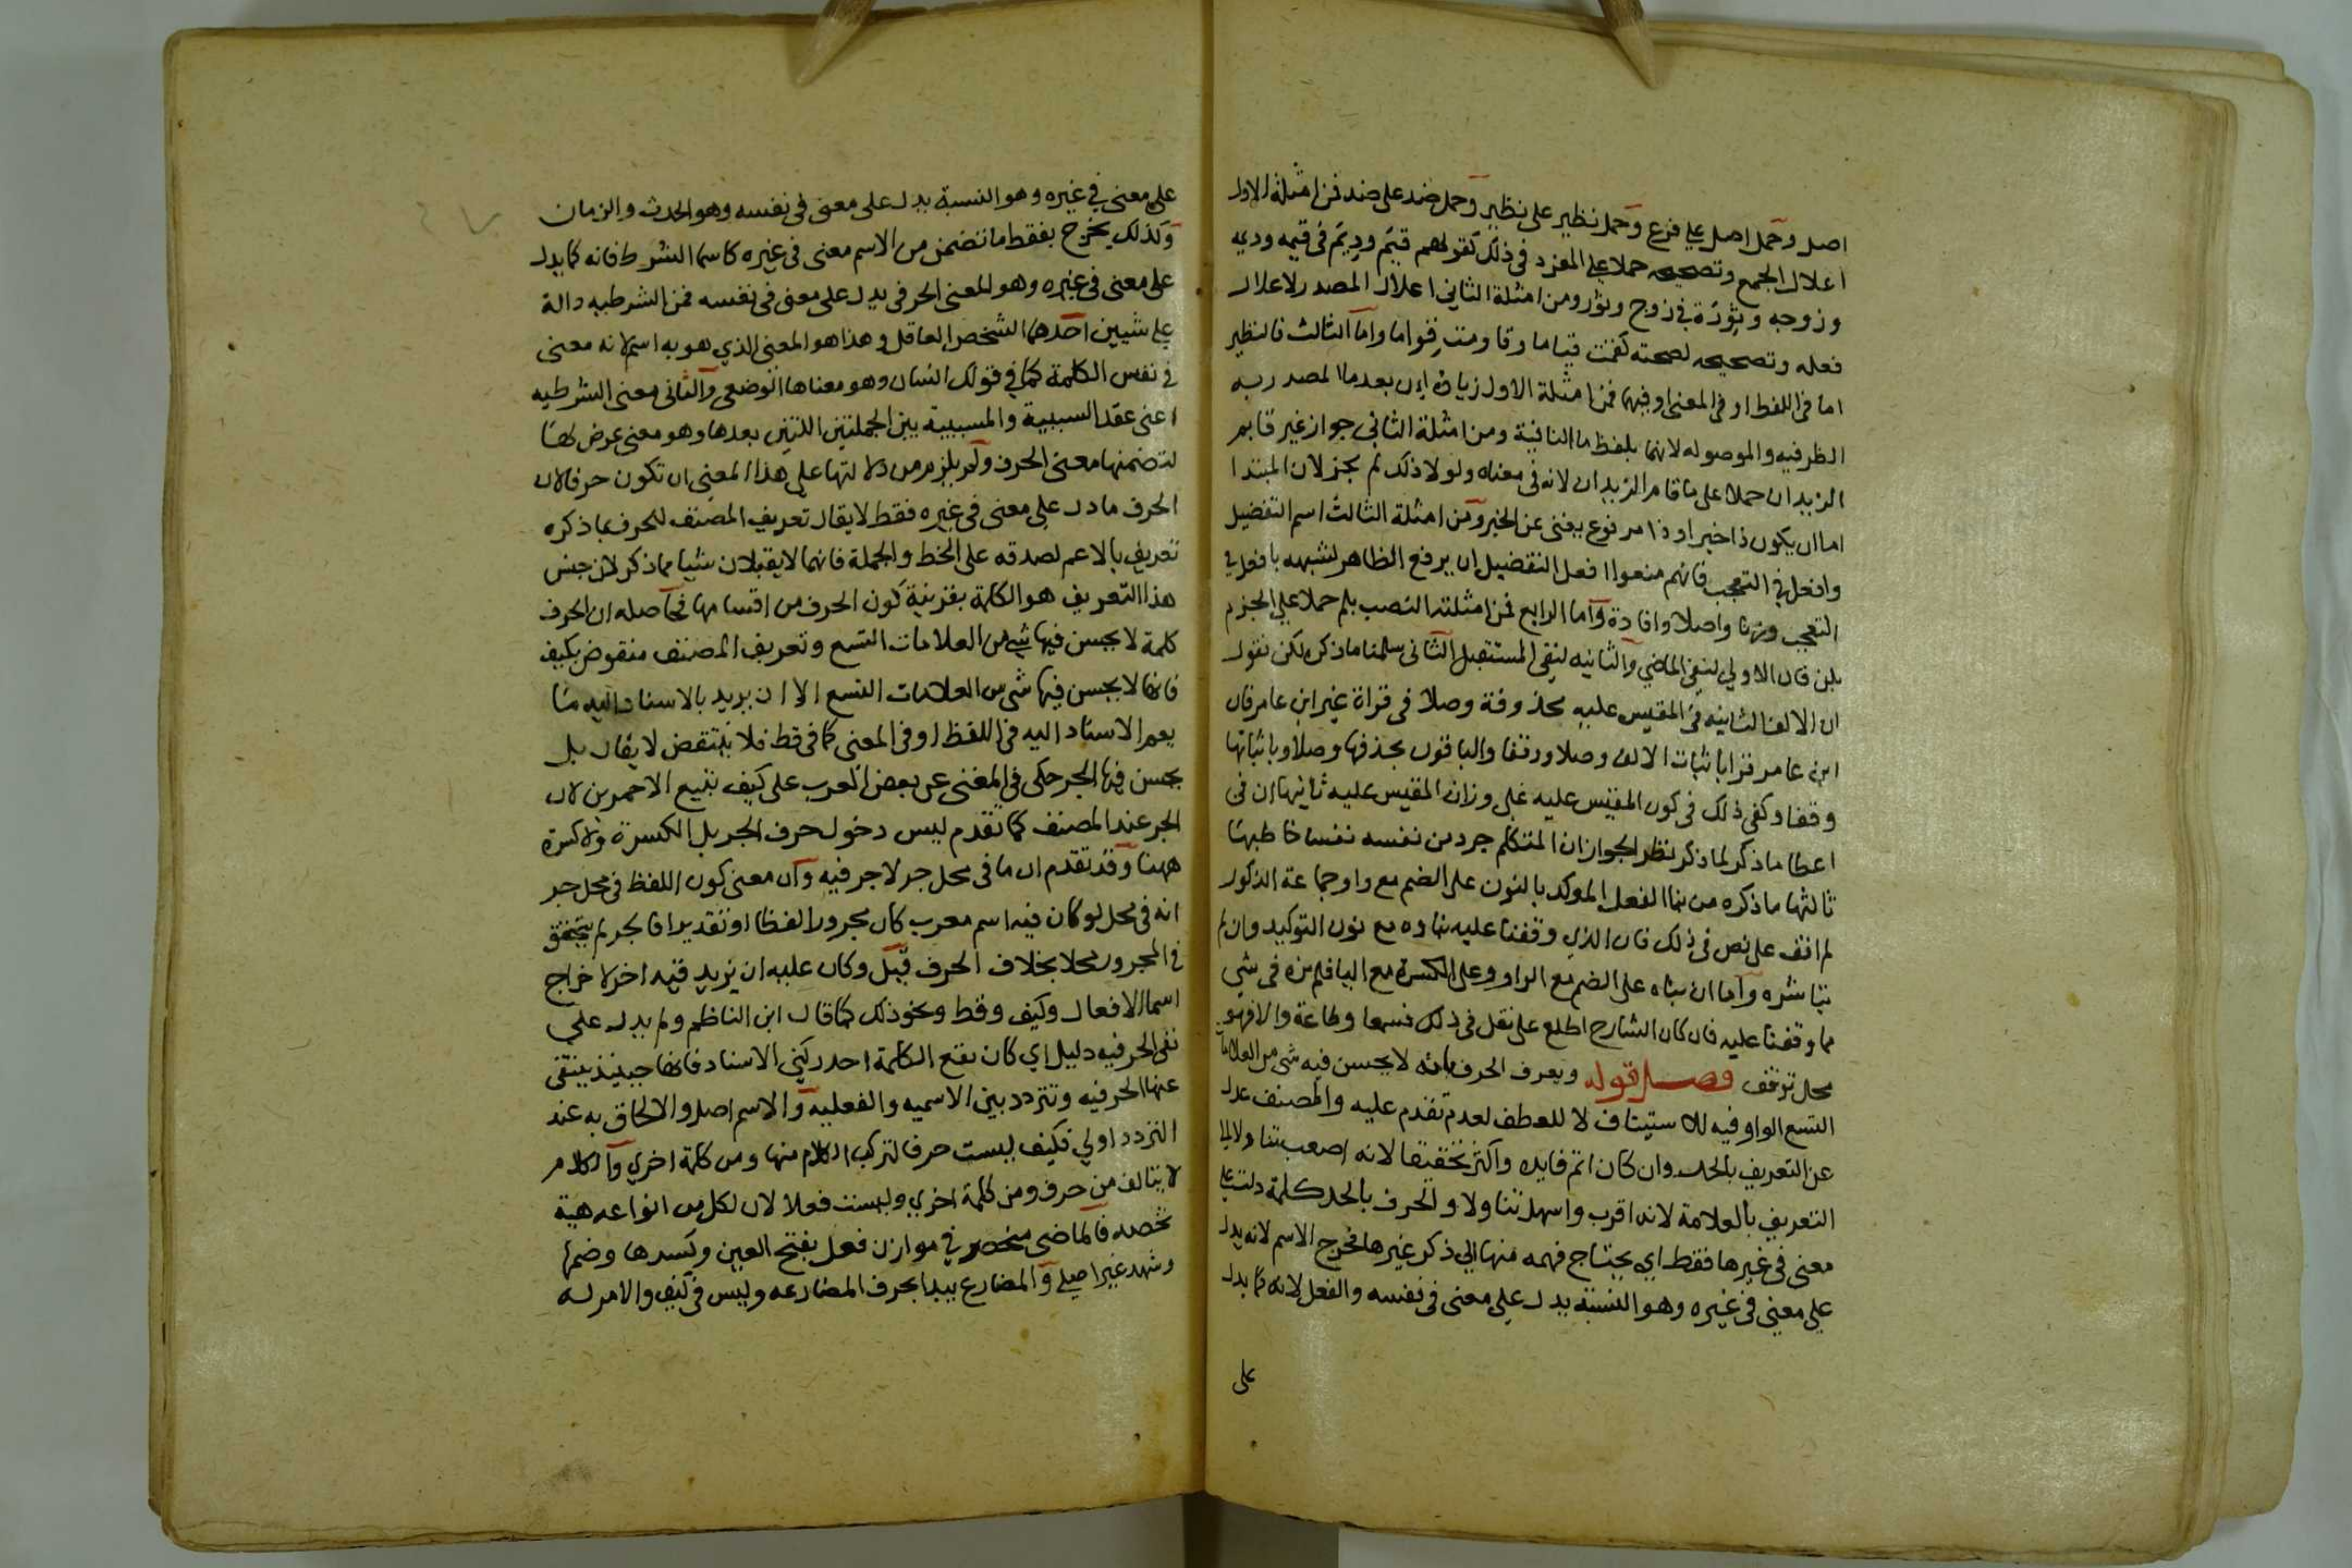 اصل وحمل اصل على فرع وحمل نظير على نظير وحمل ضد على ضد فمن امثلة الاول
اعلال الجمع وتصحيحه حملا على المفرد فى ذلك كقولهم قيم وديم فى قيمه وديمه
وزوجه وثورة فى زوج وثور ومن امثلة الثانى اعلال المصدر لاعلال
فعله وتصحيحه لصحته كقمت قياما وقاومت قواما واما الثالث فالنظير
اما فى اللفظ او فى المعنى او فيهما فمن امثلة الاول زيادة ان بعد ما المصدريه
الظرفيه والموصوله لانهما بلفظ ما النافية ومن امثلة الثانى جواز غير قايم
الزيدان حملا على ما قام الزيدان لانه فى معناه ولولا ذلك لم يجز لان المبتدا
اما ان يكون ذا خبر او ذا مرفوع يغنى عن الخبر ومن امثلة الثالث اسم التفضيل
وافعل فى التعجب فانهم منعوا افعل التفضيل ان يرفع الظاهر لشبهه بافعل فى
التعجب وزنا واصلا وافادة واما الرابع فمن امثلته النصب بلم حملا على الجزم
بلن فان الاولى لنفى الماضى والثانيه لنفى المستقبل الثانى سلمنا ما ذكره لكن نقول
ان الالف الثانيه فى المقيس عليه محذوفة وصلا فى قراة غير ابن عامر فان
ابن عامر قرا باثبات الالف وصلا ووقفا والباقون بحذفها وصلا وباثباتها
وقفا وكفى ذلك فى كون المقيس عليه على وزان المقيس عليه ثانيها ان فى
اعطا ما ذكر لما ذكر نظر الجواز ان المتكلم جرد من نفسه نفسا خاطبها
ثالثها ما ذكره من بنا الفعل الموكد بالنون على الضم مع واو جماعة الذكور
لم اقف على نص فى ذلك فان الذى وقفنا عليه بناوه مع نون التوكيد وان لم
تباشره واما ان بناه على الضم مع الواو وعلى الكسرة مع اليا فلم نره فى شى
مما وقفنا عليه فان كان الشارح اطلع على نقل فى ذلك فسمعا وطاعة والا فهو
محل توقف فصل قوله ويعرف الحرف بانه لا يحسن فيه شى من العلامات
التسع الواو فيه للاستيناف لا للعطف لعدم تقدم عليه والمصنف عدل
عن التعريف بالحد وان كان اتم فايده واكثر تحقيقا لانه اصعب تناولا الى
التعريف بالعلامة لانه اقرب واسهل تناولا والحرف بالحد كلمة دلت على
معنى فى غيرها فقط اى يحتاج فهمه منها الى ذكر غيرها فخرج الاسم لانه يدل
على معنى فى غيره وهو النسبة يدل على معنى فى نفسه والفعل لانه كما يدل
على
على معنى فى غيره وهو النسبة يدل على معنى فى نفسه وهو الحدث والزمان
وكذلك يخرج بفقط ما تضمن من الاسم معنى فى غيره كاسما الشرط فانه كما يدل
على معنى فى غيره وهو المعنى الحرفى يدل على معنى فى نفسه فمن الشرطيه دالة
على شيين احدهما الشخص العاقل وهذا هو المعنى الذى هو به اسم لانه معنى
فى نفس الكلمة كما فى قولك انسان وهو معناها الوضعى والثانى معنى الشرطيه
اعنى عقد السببية والمسببية بين الجملتين اللتين بعدها وهو معنى عرض لها
لتضمنها معنى الحرف ولم يلزم من دلالتها على هذا المعنى ان تكون حرفا لان
الحرف ما دل على معنى فى غيره فقط لا يقال تعريف المصنف للحرف بما ذكره
تعريف بالاعم لصدقه على الخط والجملة فانهما لا يقبلان شيا مما ذكر لان جنس
هذا التعريف هو الكلمة بقرينة كون الحرف من اقسامها فحاصله ان الحرف
كلمة لا يحسن فيها شى من العلامات التسع وتعريف المصنف منقوض بكيف
فانها لا يحسن فيها شى من العلامات التسع الا ان يريد بالاسناد اليه ما
يعم الاسناد اليه فى اللفظ او فى المعنى كما فى قط فلا ينتقض لا يقال بل
يحسن فيها الجر حكى فى المغنى عن بعض العرب على كيف تبيع الاحمرين لان
الجر عند المصنف كما تقدم ليس دخول حرف الجر بل الكسرة ولا كسرة
ههنا وقد تقدم ان ما فى محل جر لا جر فيه وان معنى كون اللفظ فى محل جر
انه فى محل لو كان فيه اسم معرب كان مجرورا لفظا او تقديرا فالجر لم يتحقق
فى المجرور محلا بخلاف الحرف قيل وكان عليه ان يزيد قيد اخر لاخراج
اسما الافعال وكيف وقط ونحو ذلك كما قال ابن الناظم ولم يدل على
نفى الحرفيه دليل اى كان تقع الكلمة احد ركنى الاسناد فانها حينئذ ينتفى
عنها الحرفيه وتتردد بين الاسميه والفعليه والاسم اصل والالحاق به عند
التردد اولى فكيف ليست حرفا لتركب الكلام منها ومن كلمة اخرى والكلام
لا يتالف من حرف ومن كلمة اخرى وليست فعلا لان لكل من انواعه هية
تخصه فالماضى منحصر فى موازن فعل بفتح العين وكسرها وضمها
وشهد غير اصلى والمضارع يبدا بحرف المضارعه وليس فى كيف والامر له